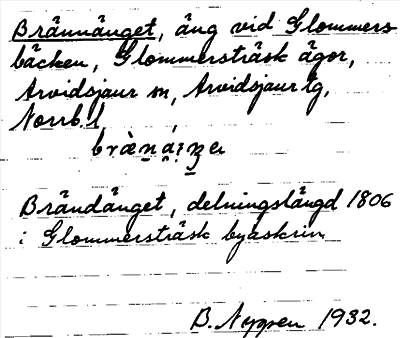 Brännänget, äng vid Glommers
bäcken, Glommersträsk ägor,
Arvidsjaur sn, Arvidsjaur tg,
Norrb. l
Brändänget, delningslängd 1806
i Glommersträsk byaskrin
B. 1932.